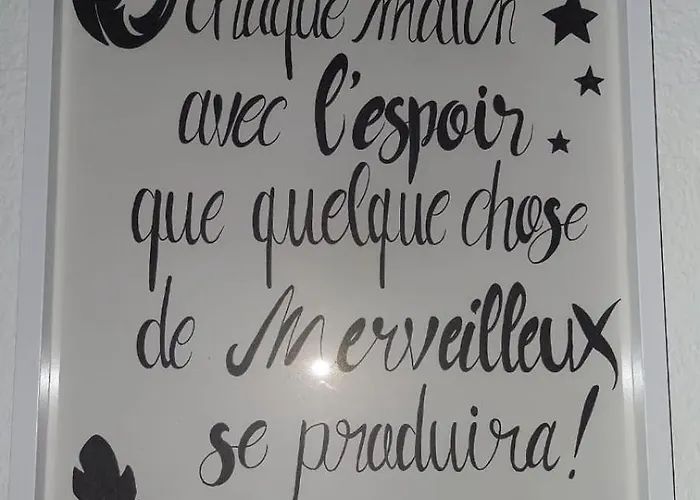 chaque matin
avec l'espoir
que quelque chose
de Merveilleux
se produira!